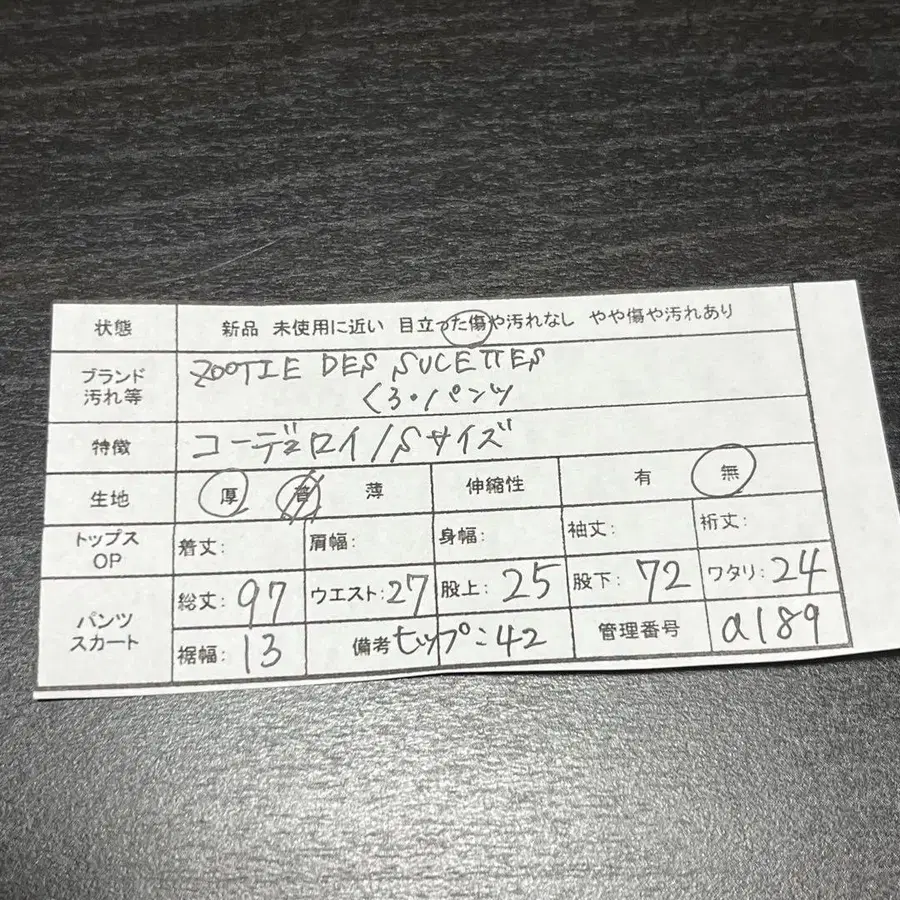 状態 新品 未使用に近い 目立った傷や汚れなし やや傷や汚れあり
ブランド 汚れ等 ZOOTIE DES SUCETTES
くろ・パンツ
特徴 コーデュロイ/Sサイズ
生地 厚 普 薄 伸縮性 有 無
トップス OP 着丈: 肩幅: 身幅: 袖丈: 裄丈:
パンツ スカート 総丈: 97 ウエスト: 27 股上: 25 股下: 72 ワタリ: 24
裾幅: 13 備考 ヒップ: 42 管理番号 a189